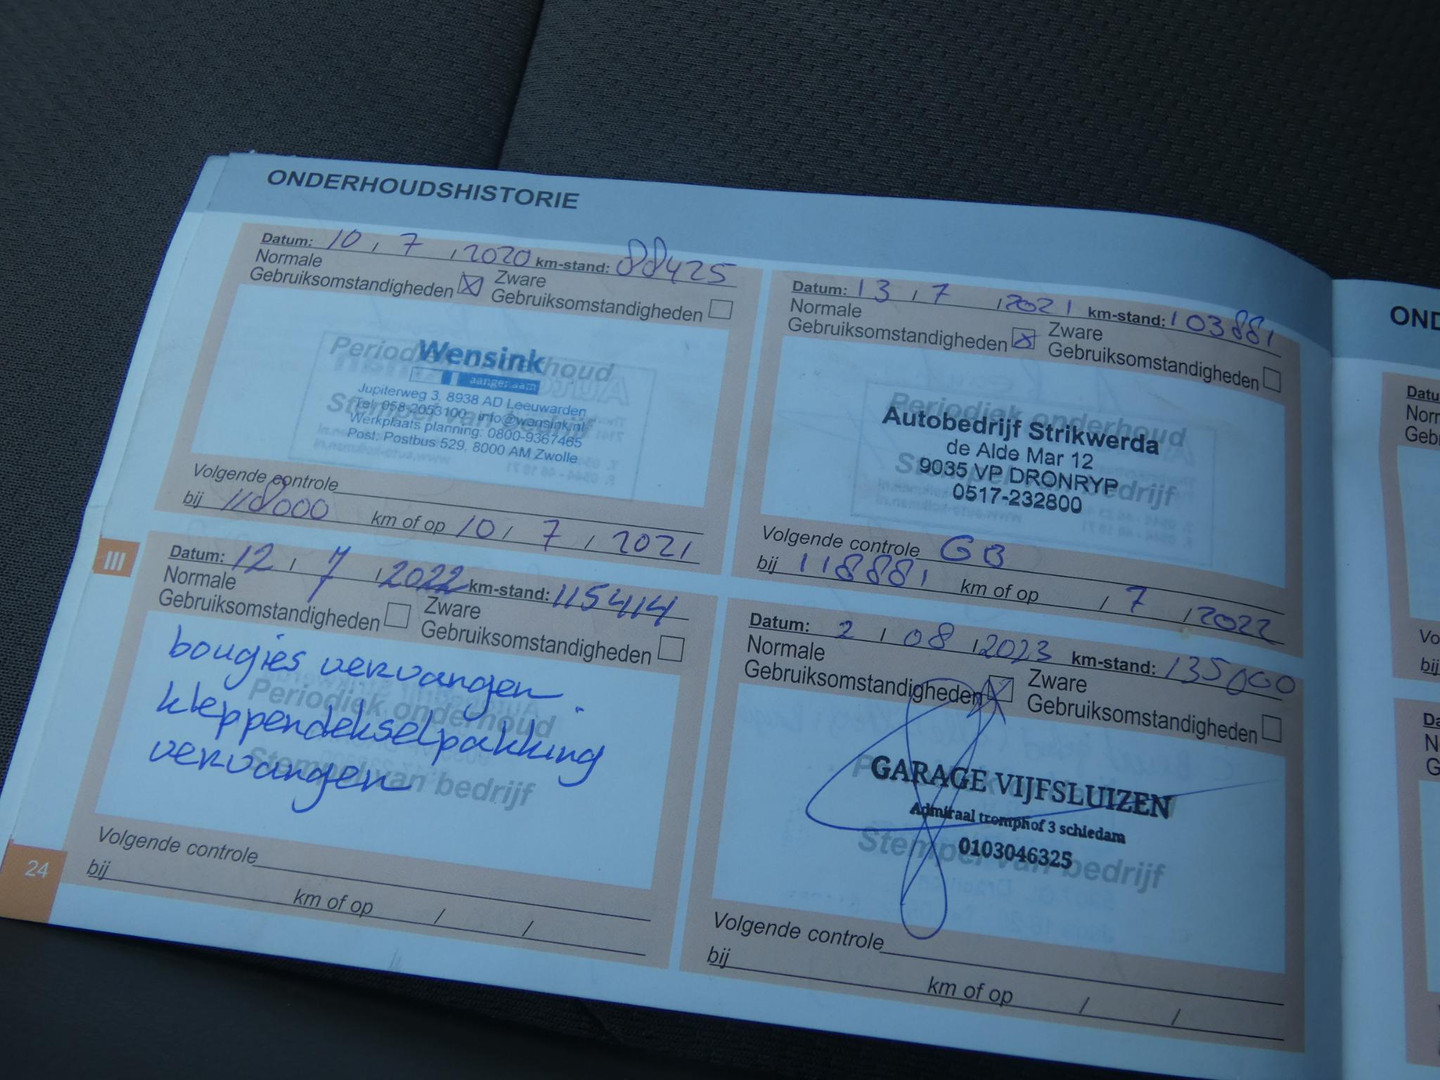 ONDERHOUDSHISTORIE
Datum: 10 / 7 / 2020 km-stand: 88425
Normale
Gebruiksomstandigheden
Zware
Gebruiksomstandigheden
Periodiek onderhoud
Wensink
aangenaam
Jupiterweg 3, 8938 AD Leeuwarden
Tel. 058-2053100 info@wensink.nl
Werkplaats planning: 0800-9367465
Post: Postbus 529, 8000 AM Zwolle
Stempel van bedrijf
Volgende controle
bij 118000 km of op 10 / 7 / 2021
Datum: 13 / 7 / 2021 km-stand: 103881
Normale
Gebruiksomstandigheden
Zware
Gebruiksomstandigheden
Periodiek onderhoud
Autobedrijf Strikwerda
de Alde Mar 12
9035 VP DRONRYP
0517-232800
Stempel van bedrijf
Volgende controle GB
bij 118881 km of op / 7 / 2022
III
Datum: 12 / 7 / 2022 km-stand: 115414
Normale
Gebruiksomstandigheden
Zware
Gebruiksomstandigheden
bougies vervangen
Periodiek onderhoud
kleppendekselpakking
vervangen
Stempel van bedrijf
Volgende controle
bij
km of op / /
24
Datum: 2 / 08 / 2023 km-stand: 135000
Normale
Gebruiksomstandigheden
Zware
Gebruiksomstandigheden
GARAGE VIJFSLUIZEN
Admiraal tromphof 3 schiedam
0103046325
Stempel van bedrijf
Volgende controle
bij
km of op / /
OND
Datu
Norm
Geb
Vo
bij
Da
N
G